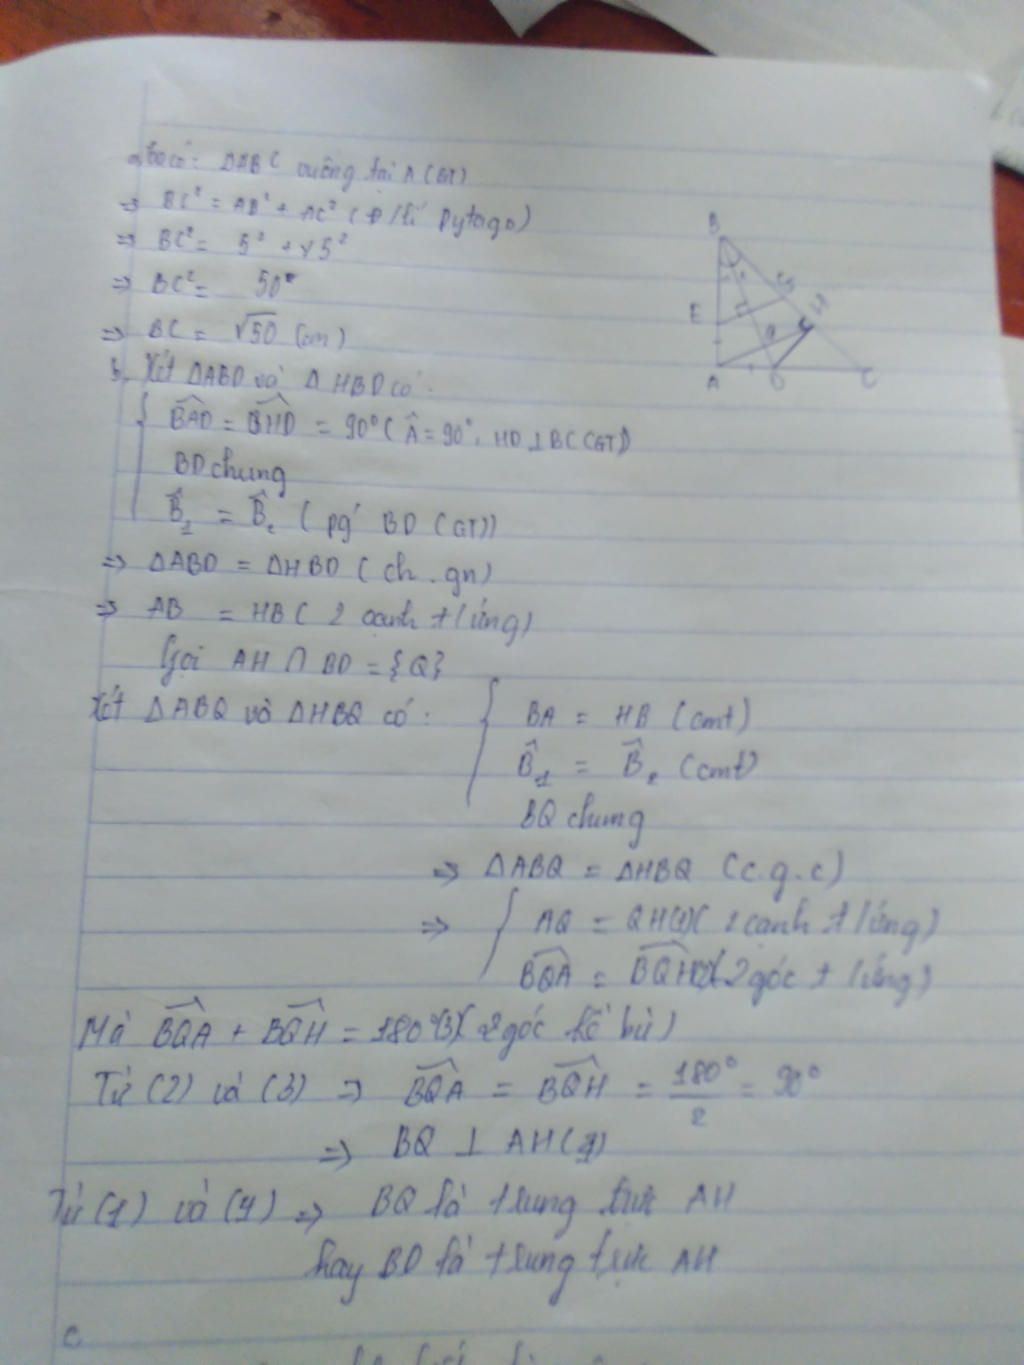 a, ta có: ΔABC vuông tại A (GT)
⇒ BC² = AB² + AC² (Đ/lí Pytago)
⇒ BC² = 5² + √5²
⇒ BC² = 50
⇒ BC = √50 (cm)
b, Xét ΔABD và ΔHBD có:
BAD = BHD = 90° (Â = 90°, HD ⊥ BC (GT))
BD chung
B̂₁ = B̂₂ (pg BD (GT))
⇒ ΔABD = ΔHBD (ch.gn)
⇒ AB = HB (2 cạnh t/ứng)
Gọi AH ∩ BD = {Q}
Xét ΔABQ và ΔHBQ có:
BA = HB (cmt)
B̂₁ = B̂₂ (cmt)
BQ chung
⇒ ΔABQ = ΔHBQ (c.g.c)
⇒ AQ = QH (1) (2 cạnh t/ứng)
BQA = BQH (2) (2 góc t/ứng)
Mà BQA + BQH = 180° (3) (2 góc kề bù)
Từ (2) và (3) ⇒ BQA = BQH = 180°/2 = 90°
⇒ BQ ⊥ AH (4)
Từ (1) và (4) ⇒ BQ là trung trực AH
hay BD là trung trực AH
c
B
E
A
D
C
H
Q